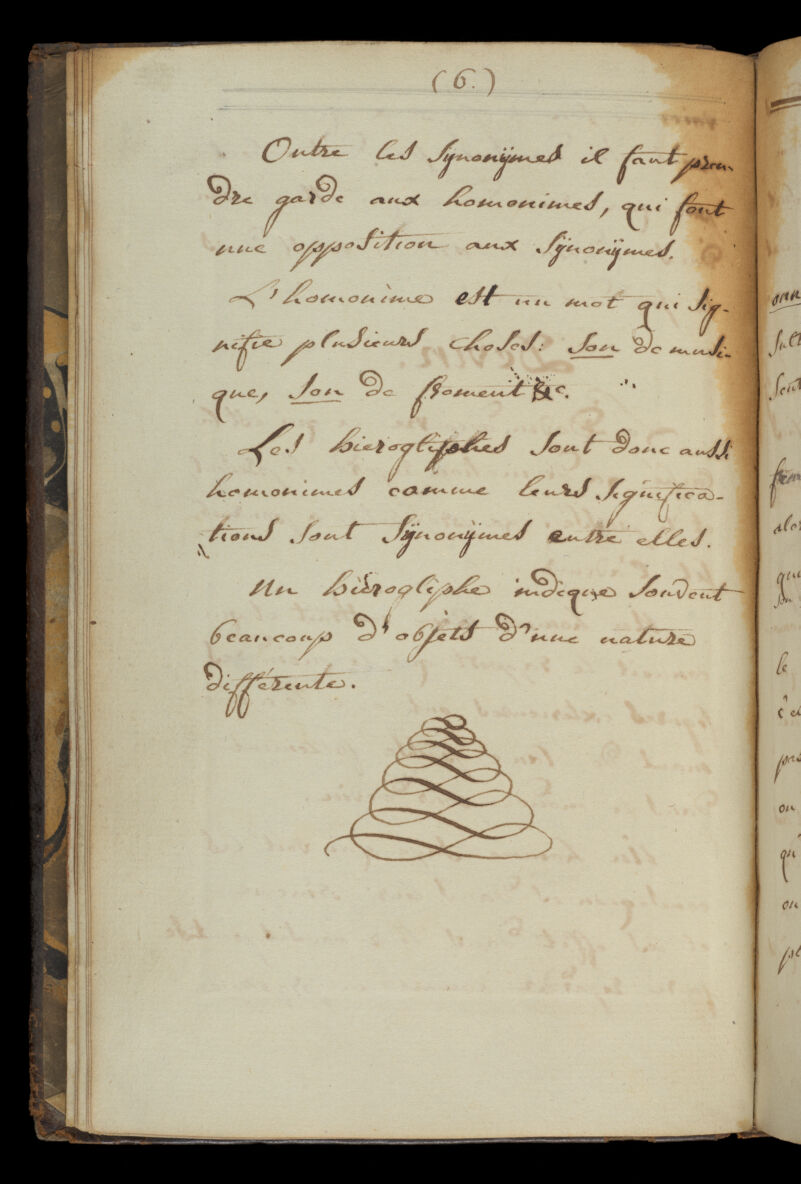 (6.)
Outre les Synonÿmes il faut pren-
dre garde aux homonimes, qui font
une opposition aux Sÿnonÿmes.
L'homonime est un mot qui sig-
nifie plusieurs choses: son de musi-
que, son de froment &c.
Les hierogliphes sont donc aussi
homonimes comme leurs significa-
tions sont Sÿnonÿmes entre elles.
Un hiérogliphe indique souvent
beaucoup d'objets d'une nature
différente.